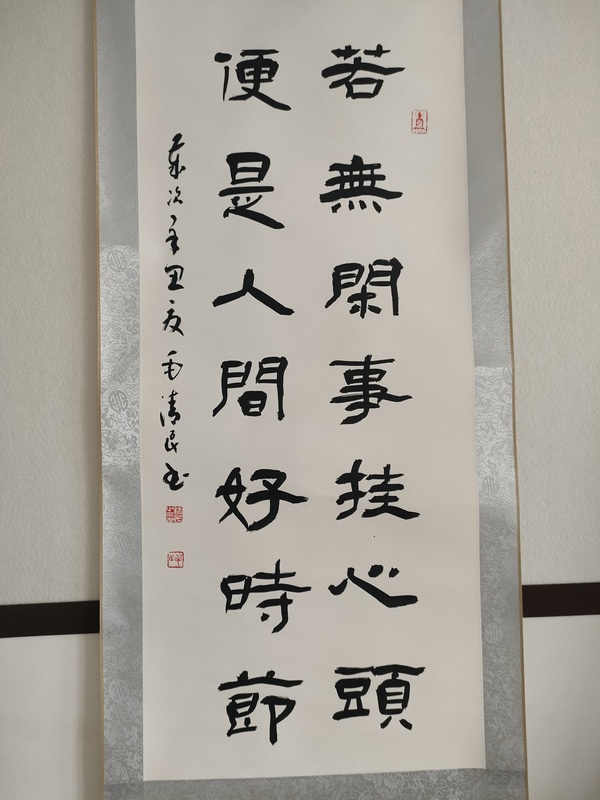 若無閑事挂心頭
便是人間好時節
歲次辛丑夏毛清民書